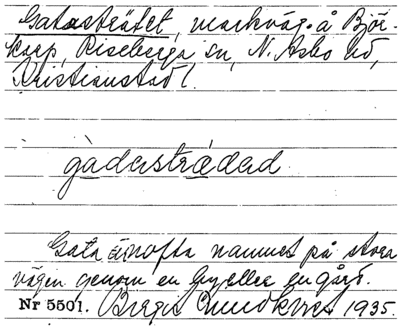 Gatasträtet, markväg å Björ-
karp, Riseberga sn, N. Åsbo hd,
Kristianstad l.
gàdasträdad
Gata är ofta namnet på stora
vägen genom en by eller en gård.
Nr 5501. Birger Lundkvist 1935.